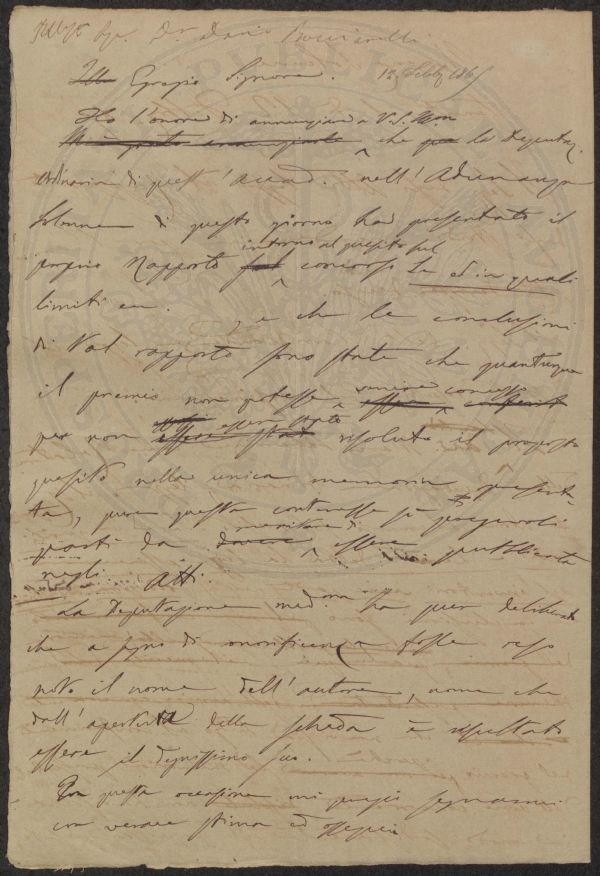 Dr Dario
Ill Egregio Signore. 12 Febb. 186
Ho l'onore di annunziare a V. S. Ill.ma
che la Deputaz.
ordinaria di quest'Accad. nell'Adunanza
solenne di questo giorno ha presentato il
intorno al quesito sul
proprio Rapporto sul concorso Se ed in quali
limiti ec. e che le conclusioni
di tal rapporto sono state che quantunque
venire concesso
il premio non potesse essere conferito
essere stato
per non essere stato risoluto il proposto
quesito nella unica memoria presenta-
ta, pure questa contenesse sì pregevoli
meritare di
parti da dovere essere pubblicata
negli Atti.
La Deputazione med.ma ha pur deliberato
che a segno di onorificenza fosse reso
noto il nome dell'autore, nome che
dall'apertura della scheda è risultato
essere il degnissimo suo.
questa occasione mi pregio segnarmi
con verace stima ed ossequio